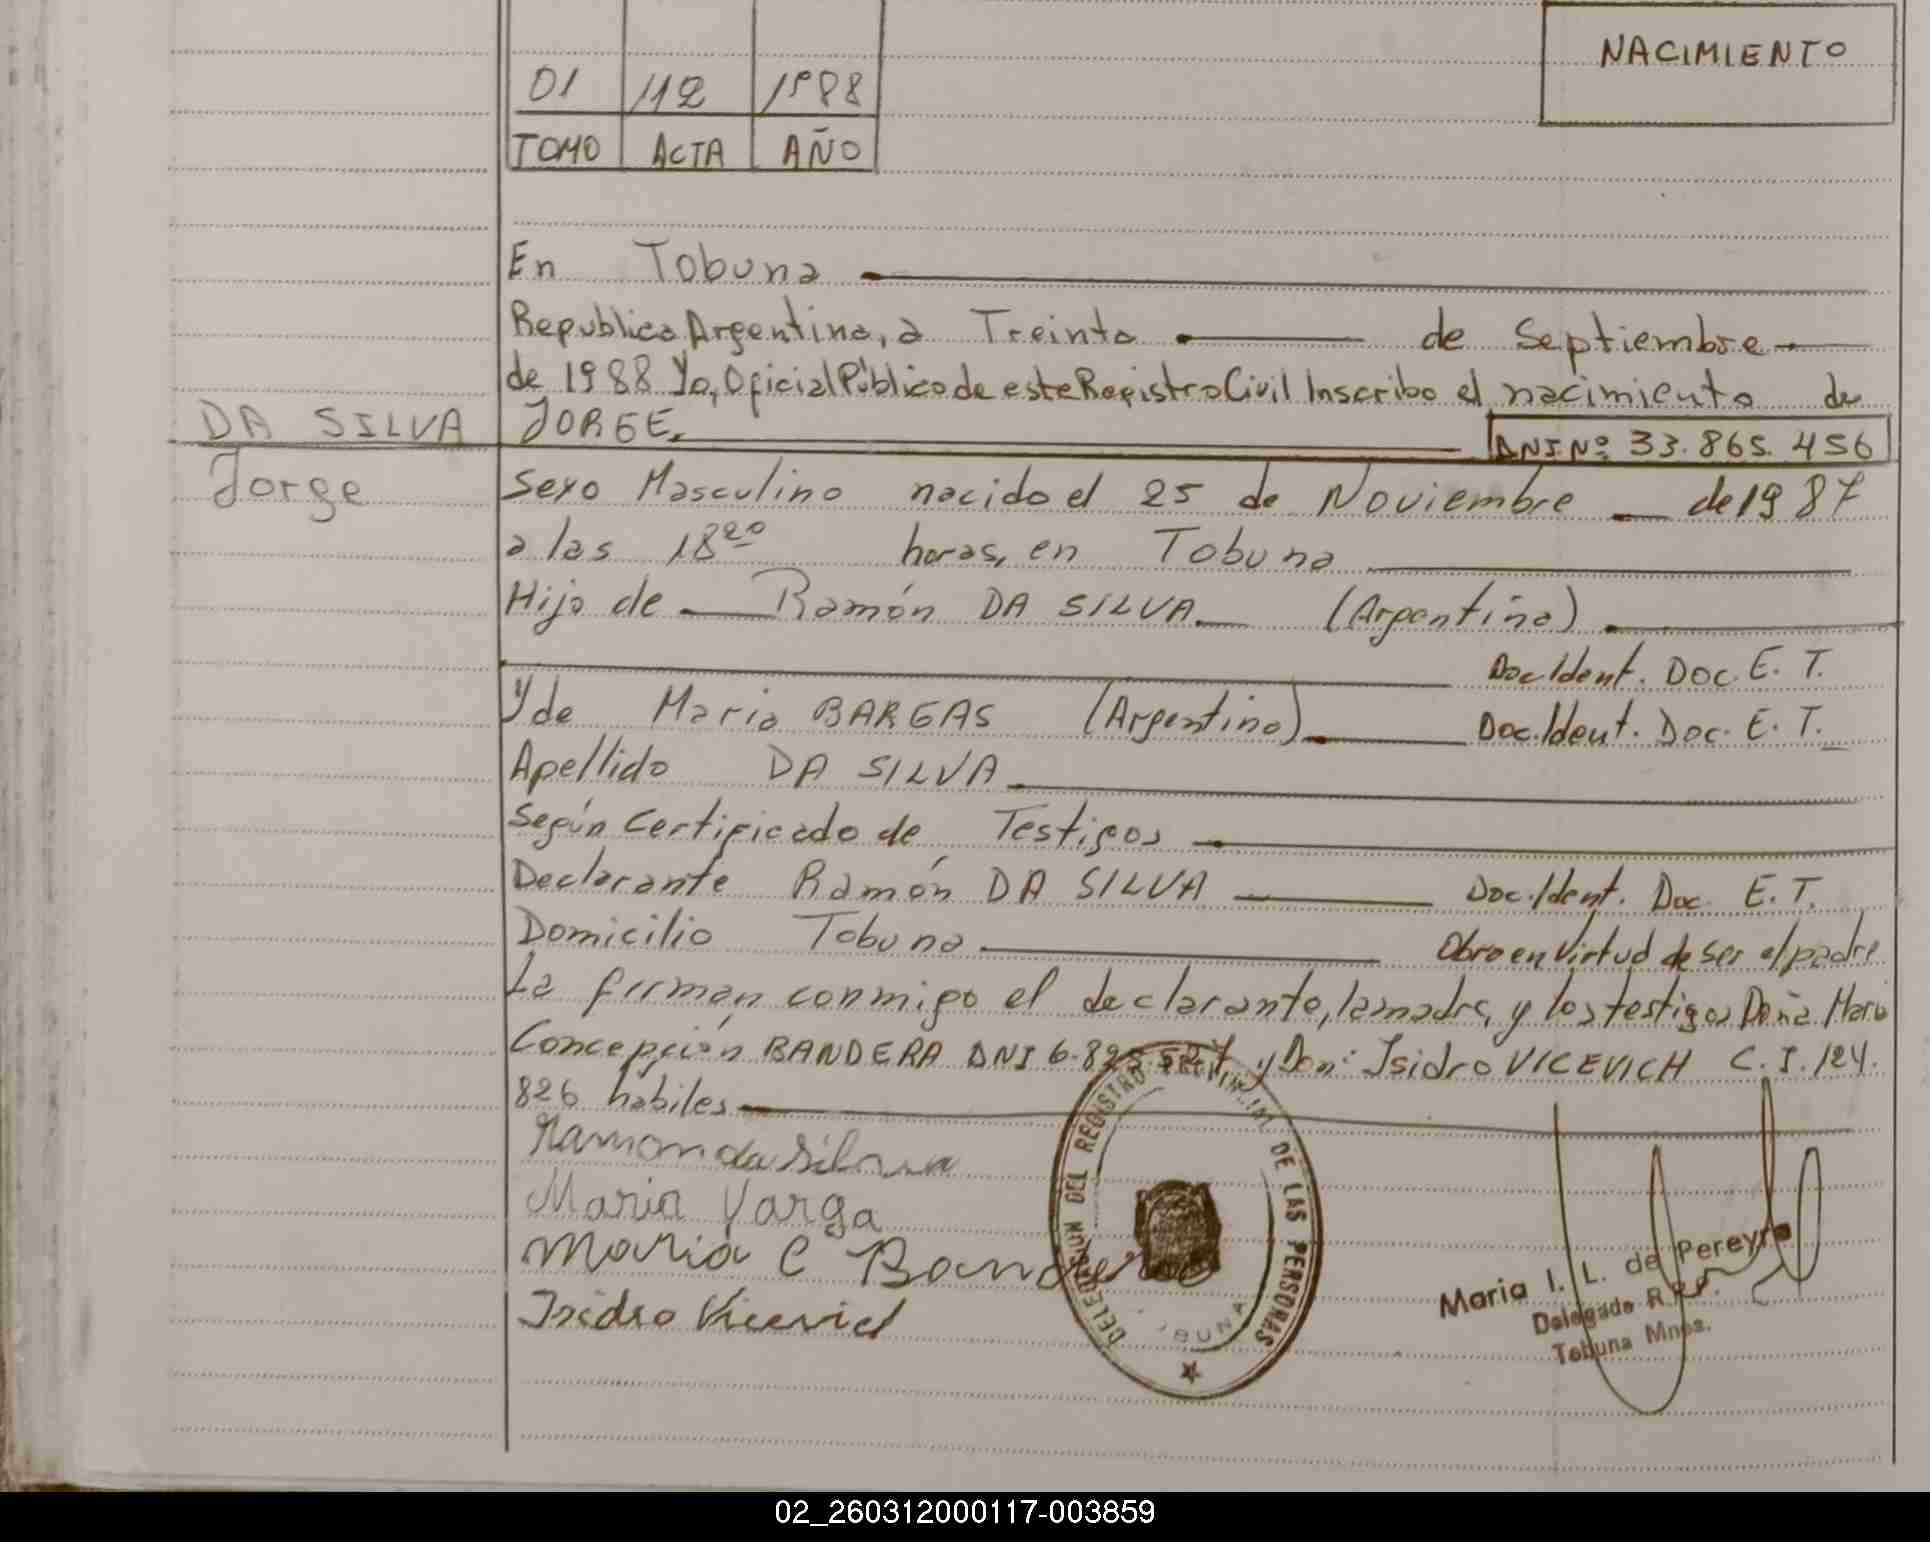 NACIMIENTO
01 112 1988
TOMO ACTA AÑO
En Tobuna
Republica Argentina, a Treinta de Septiembre
de 1988 Yo, Oficial Público de este Registro Civil Inscribo el nacimiento de
DA SILVA JORGE. DNI Nº 33.865.456
Jorge Sexo Masculino nacido el 25 de Noviembre de 1987
a las 18 20 horas, en Tobuna
Hijo de Ramón DA SILVA (Argentina)
Doc Ident. Doc. E. T.
Y de Maria BARGAS (Argentina) Doc. Ident. Doc. E. T.
Apellido DA SILVA
Según Certificado de Testigos
Declarante Ramón DA SILVA Doc. Ident. Doc. E. T.
Domicilio Tobuna Obro en Virtud de ser el padre
La firman conmigo el declarante, la madre, y los testigos Doña Maria
Concepción BANDERA DNI y Don: Isidro VICEVICH C. I. 124.
826 habiles
Ramon da Silva
Maria Varga
Maria C Bandera
Isidro Vicevich
DELEGACION DEL REGISTRO PROVINCIAL DE LAS PERSONAS
TOBUNA
Maria I. L. de Pereyra
Delegada R.P.P.
Tobuna Mnes.
02_260312000117-003859